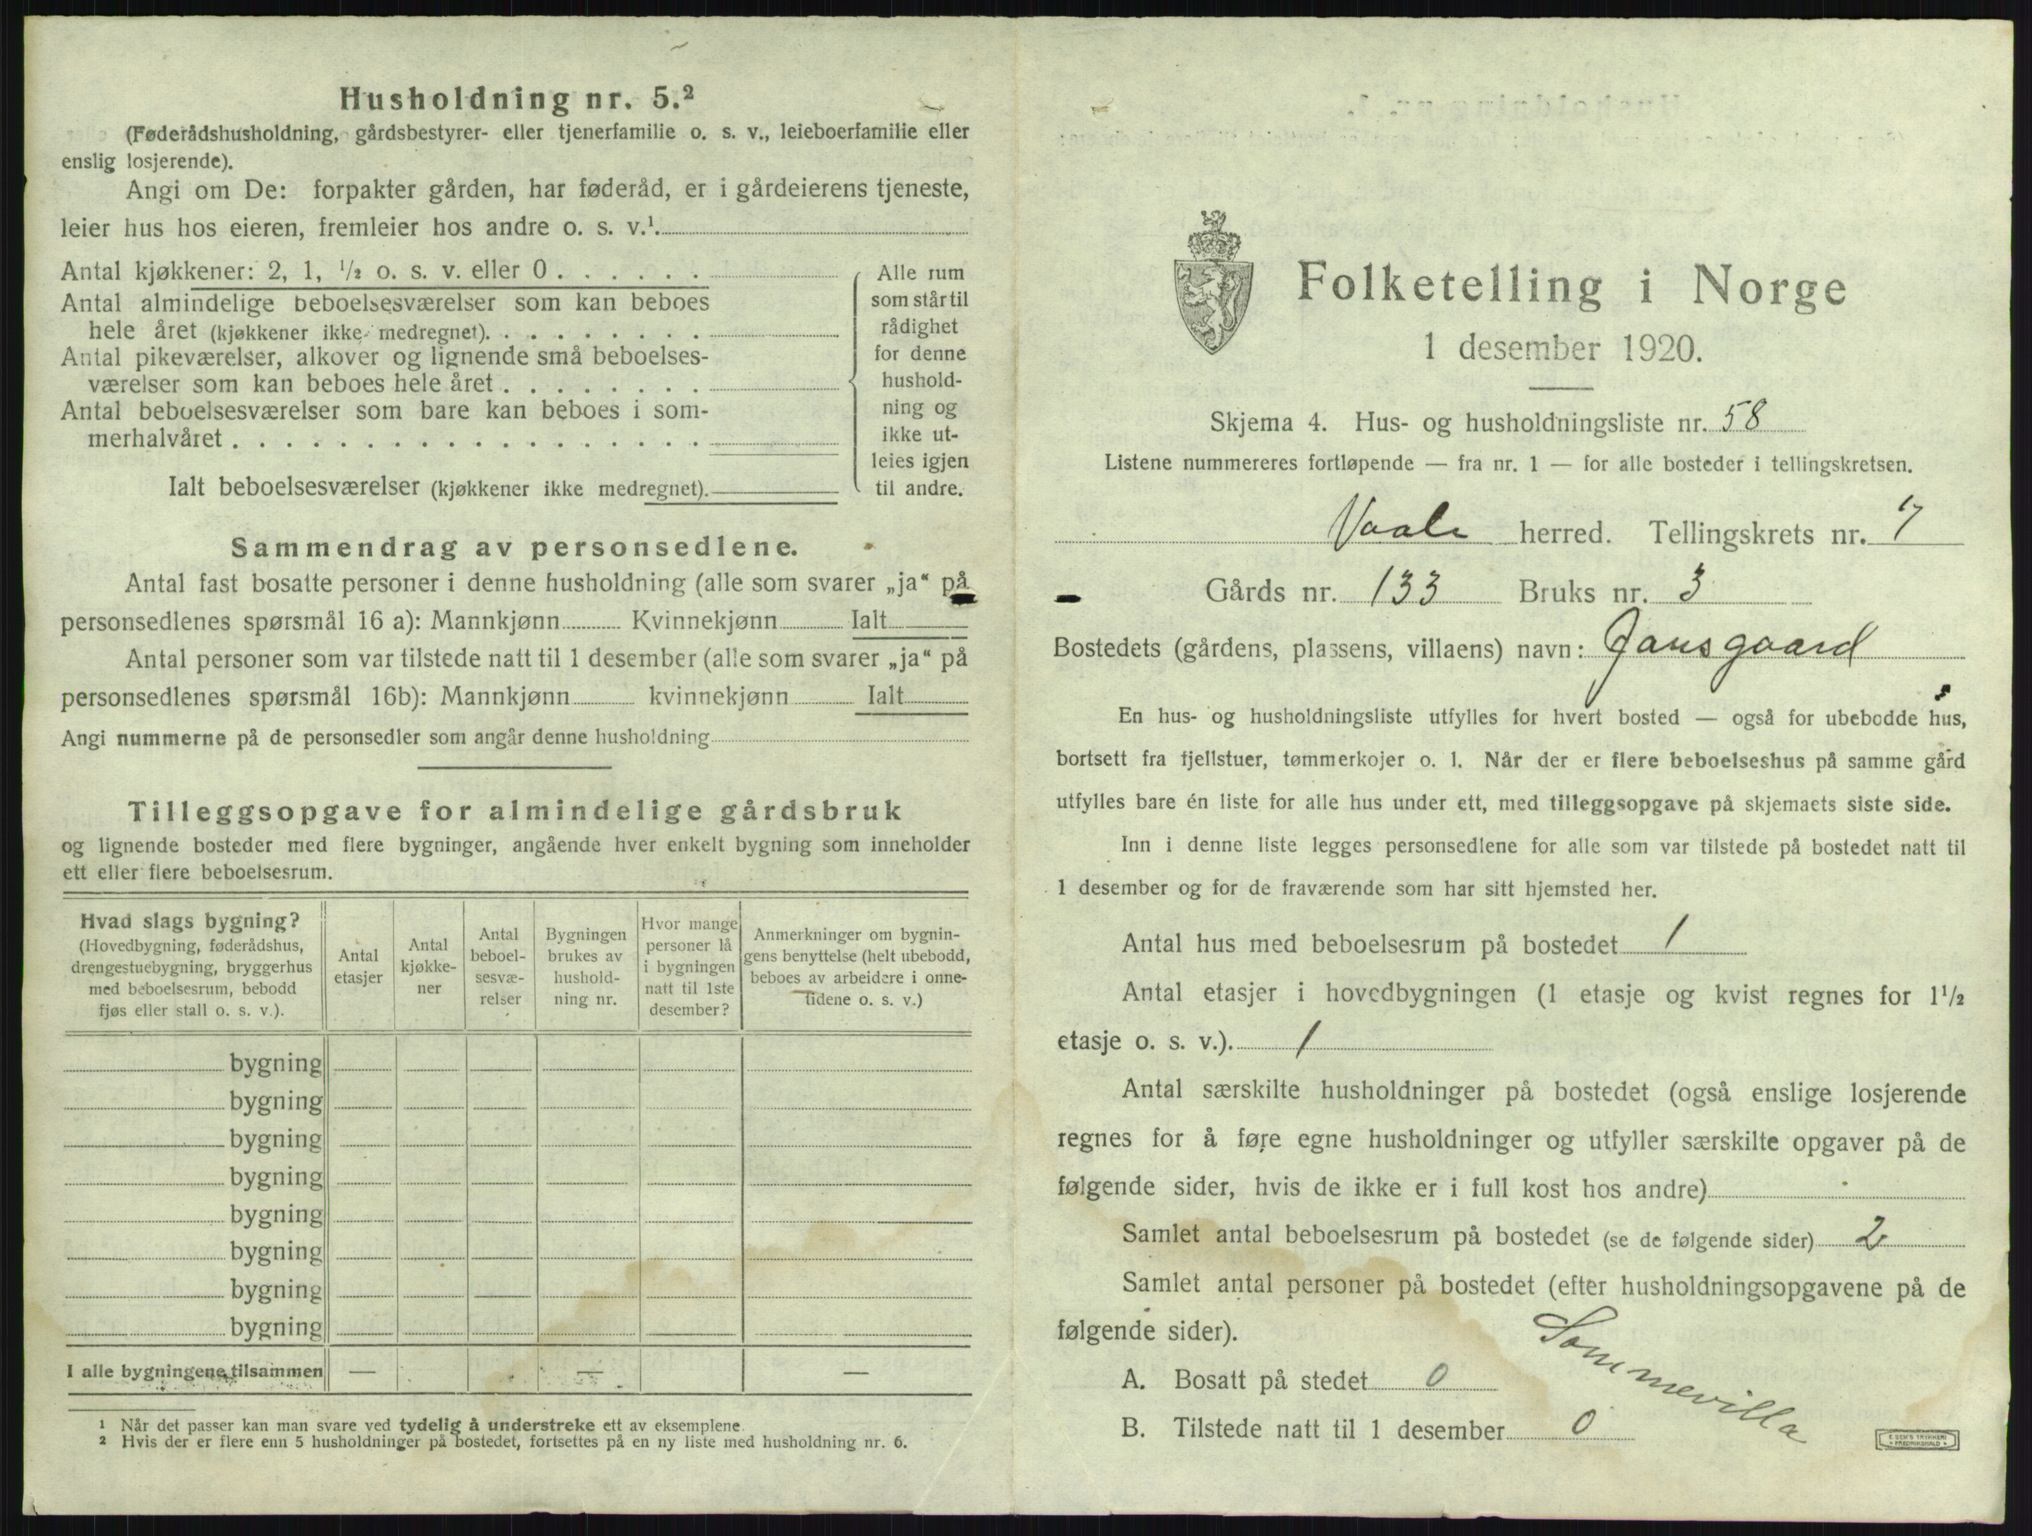 Husholdning nr. 5.²
(Føderådshusholdning, gårdsbestyrer- eller tjenerfamilie o. s. v., leieboerfamilie eller
enslig losjerende).
Angi om De: forpakter gården, har føderåd, er i gårdeierens tjeneste,
leier hus hos eieren, fremleier hos andre o. s. v.¹.
Antal kjøkkener: 2, 1, ½ o. s. v. eller 0 . . . . . .
Antal almindelige beboelsesværelser som kan beboes
hele året (kjøkkener ikke medregnet). . . . . . . . .
Antal pikeværelser, alkover og lignende små beboelses-
værelser som kan beboes hele året . . . . . . . .
Antal beboelsesværelser som bare kan beboes i som-
merhalvåret . . . . . . . . . . . . . . . . . .
Ialt beboelsesværelser (kjøkkener ikke medregnet).
Alle rum
som står til
rådighet
for denne
hushold-
ning og
ikke ut-
leies igjen
til andre.
Sammendrag av personsedlene.
Antal fast bosatte personer i denne husholdning (alle som svarer „ja“ på
personsedlenes spørsmål 16 a): Mannkjønn Kvinnekjønn Ialt
Antal personer som var tilstede natt til 1 desember (alle som svarer „ja“ på
personsedlenes spørsmål 16b): Mannkjønn kvinnekjønn Ialt
Angi nummerne på de personsedler som angår denne husholdning
Tilleggsopgave for almindelige gårdsbruk
og lignende bosteder med flere bygninger, angående hver enkelt bygning som inneholder
ett eller flere beboelsesrum.
Hvad slags bygning?
(Hovedbygning, føderådshus,
drengestuebygning, bryggerhus
med beboelsesrum, bebodd
fjøs eller stall o. s. v.).
Antal
etasjer
Antal
kjøkke-
ner
Antal
beboel-
sesvæ-
relser
Bygningen
brukes av
hushold-
ning nr.
Hvor mange
personer lå
i bygningen
natt til 1ste
desember?
Anmerkninger om bygnin-
gens benyttelse (helt ubebodd,
beboes av arbeidere i onne-
tidene o. s. v.)
bygning
bygning
bygning
bygning
bygning
bygning
bygning
bygning
I alle bygningene tilsammen — — —
¹ Når det passer kan man svare ved tydelig å understreke ett av eksemplene.
² Hvis der er flere enn 5 husholdninger på bostedet, fortsettes på en ny liste med husholdning nr. 6.
Folketelling i Norge
1 desember 1920.
Skjema 4. Hus- og husholdningsliste nr. 58
Listene nummereres fortløpende — fra nr. 1 — for alle bosteder i tellingskretsen.
Vaale herred. Tellingskrets nr. 7
Gårds nr. 133 Bruks nr. 3
Bostedets (gårdens, plassens, villaens) navn: Jansgaard
En hus- og husholdningsliste utfylles for hvert bosted — også for ubebodde hus,
bortsett fra fjellstuer, tømmerkojer o. l. Når der er flere beboelseshus på samme gård
utfylles bare én liste for alle hus under ett, med tilleggsopgave på skjemaets siste side.
Inn i denne liste legges personsedlene for alle som var tilstede på bostedet natt til
1 desember og for de fraværende som har sitt hjemsted her.
Antal hus med beboelsesrum på bostedet 1
Antal etasjer i hovedbygningen (1 etasje og kvist regnes for 1½
etasje o. s. v.). 1
Antal særskilte husholdninger på bostedet (også enslige losjerende
regnes for å føre egne husholdninger og utfyller særskilte opgaver på de
følgende sider, hvis de ikke er i full kost hos andre)
Samlet antal beboelsesrum på bostedet (se de følgende sider) 2
Samlet antal personer på bostedet (efter husholdningsopgavene på de
følgende sider).
A. Bosatt på stedet 0
B. Tilstede natt til 1 desember 0
Sommervilla